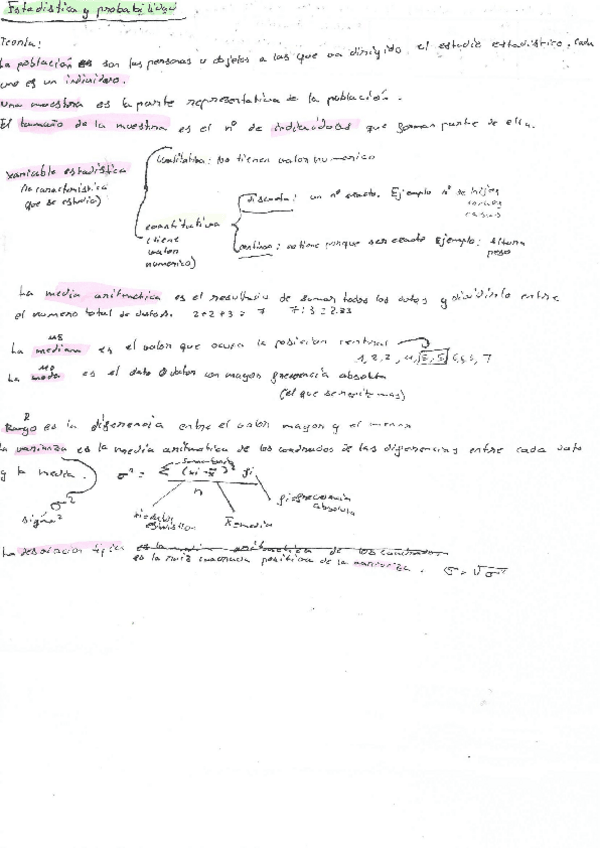 Estadistica y probabilidad
Teoria:
La población es son las personas u objetos a las que va dirigido el estudio estadistico. Cada
uno es un individuo.
Una muestra es la parte representativa de la población.
El tamaño de la muestra es el nº de individuos que forman parte de ella.
Variable estadistica
(la caracteristica
que se estudia)
Cualitativa: no tienen valor numerico
cuantitativa
(tiene
valor
numerico)
discreta: un nº exacto. Ejemplo nº de hijos
coches
casas
continua: no tiene porque ser exacto Ejemplo: altura
peso
La media aritmetica es el resultado de sumar todos los datos y dividirlo entre
el numero total de datos. 2+2+3 = 7 7:3 = 2.33
Me
La mediana es el valor que ocupa la posicion central
1, 2, 2, 4, 5, 5, 6, 6, 7
Mo
La moda es el dato o valor con mayor frecuencia absoluta
(el que se repite mas)
R
Rango es la diferencia entre el valor mayor y el menor
La varianza es la media aritmetica de los cuadrados de las diferencias entre cada dato
y la media. σ² = Σ (xi - x̄)² fi
n
σ²
sigma²
xi = datos
estadisticos
x̄ = media
fi = frecuencia
absoluta
La desviacion tipica es la media aritmetica de los cuadrados
es la raiz cuadrada positiva de la varianza. σ = √σ²